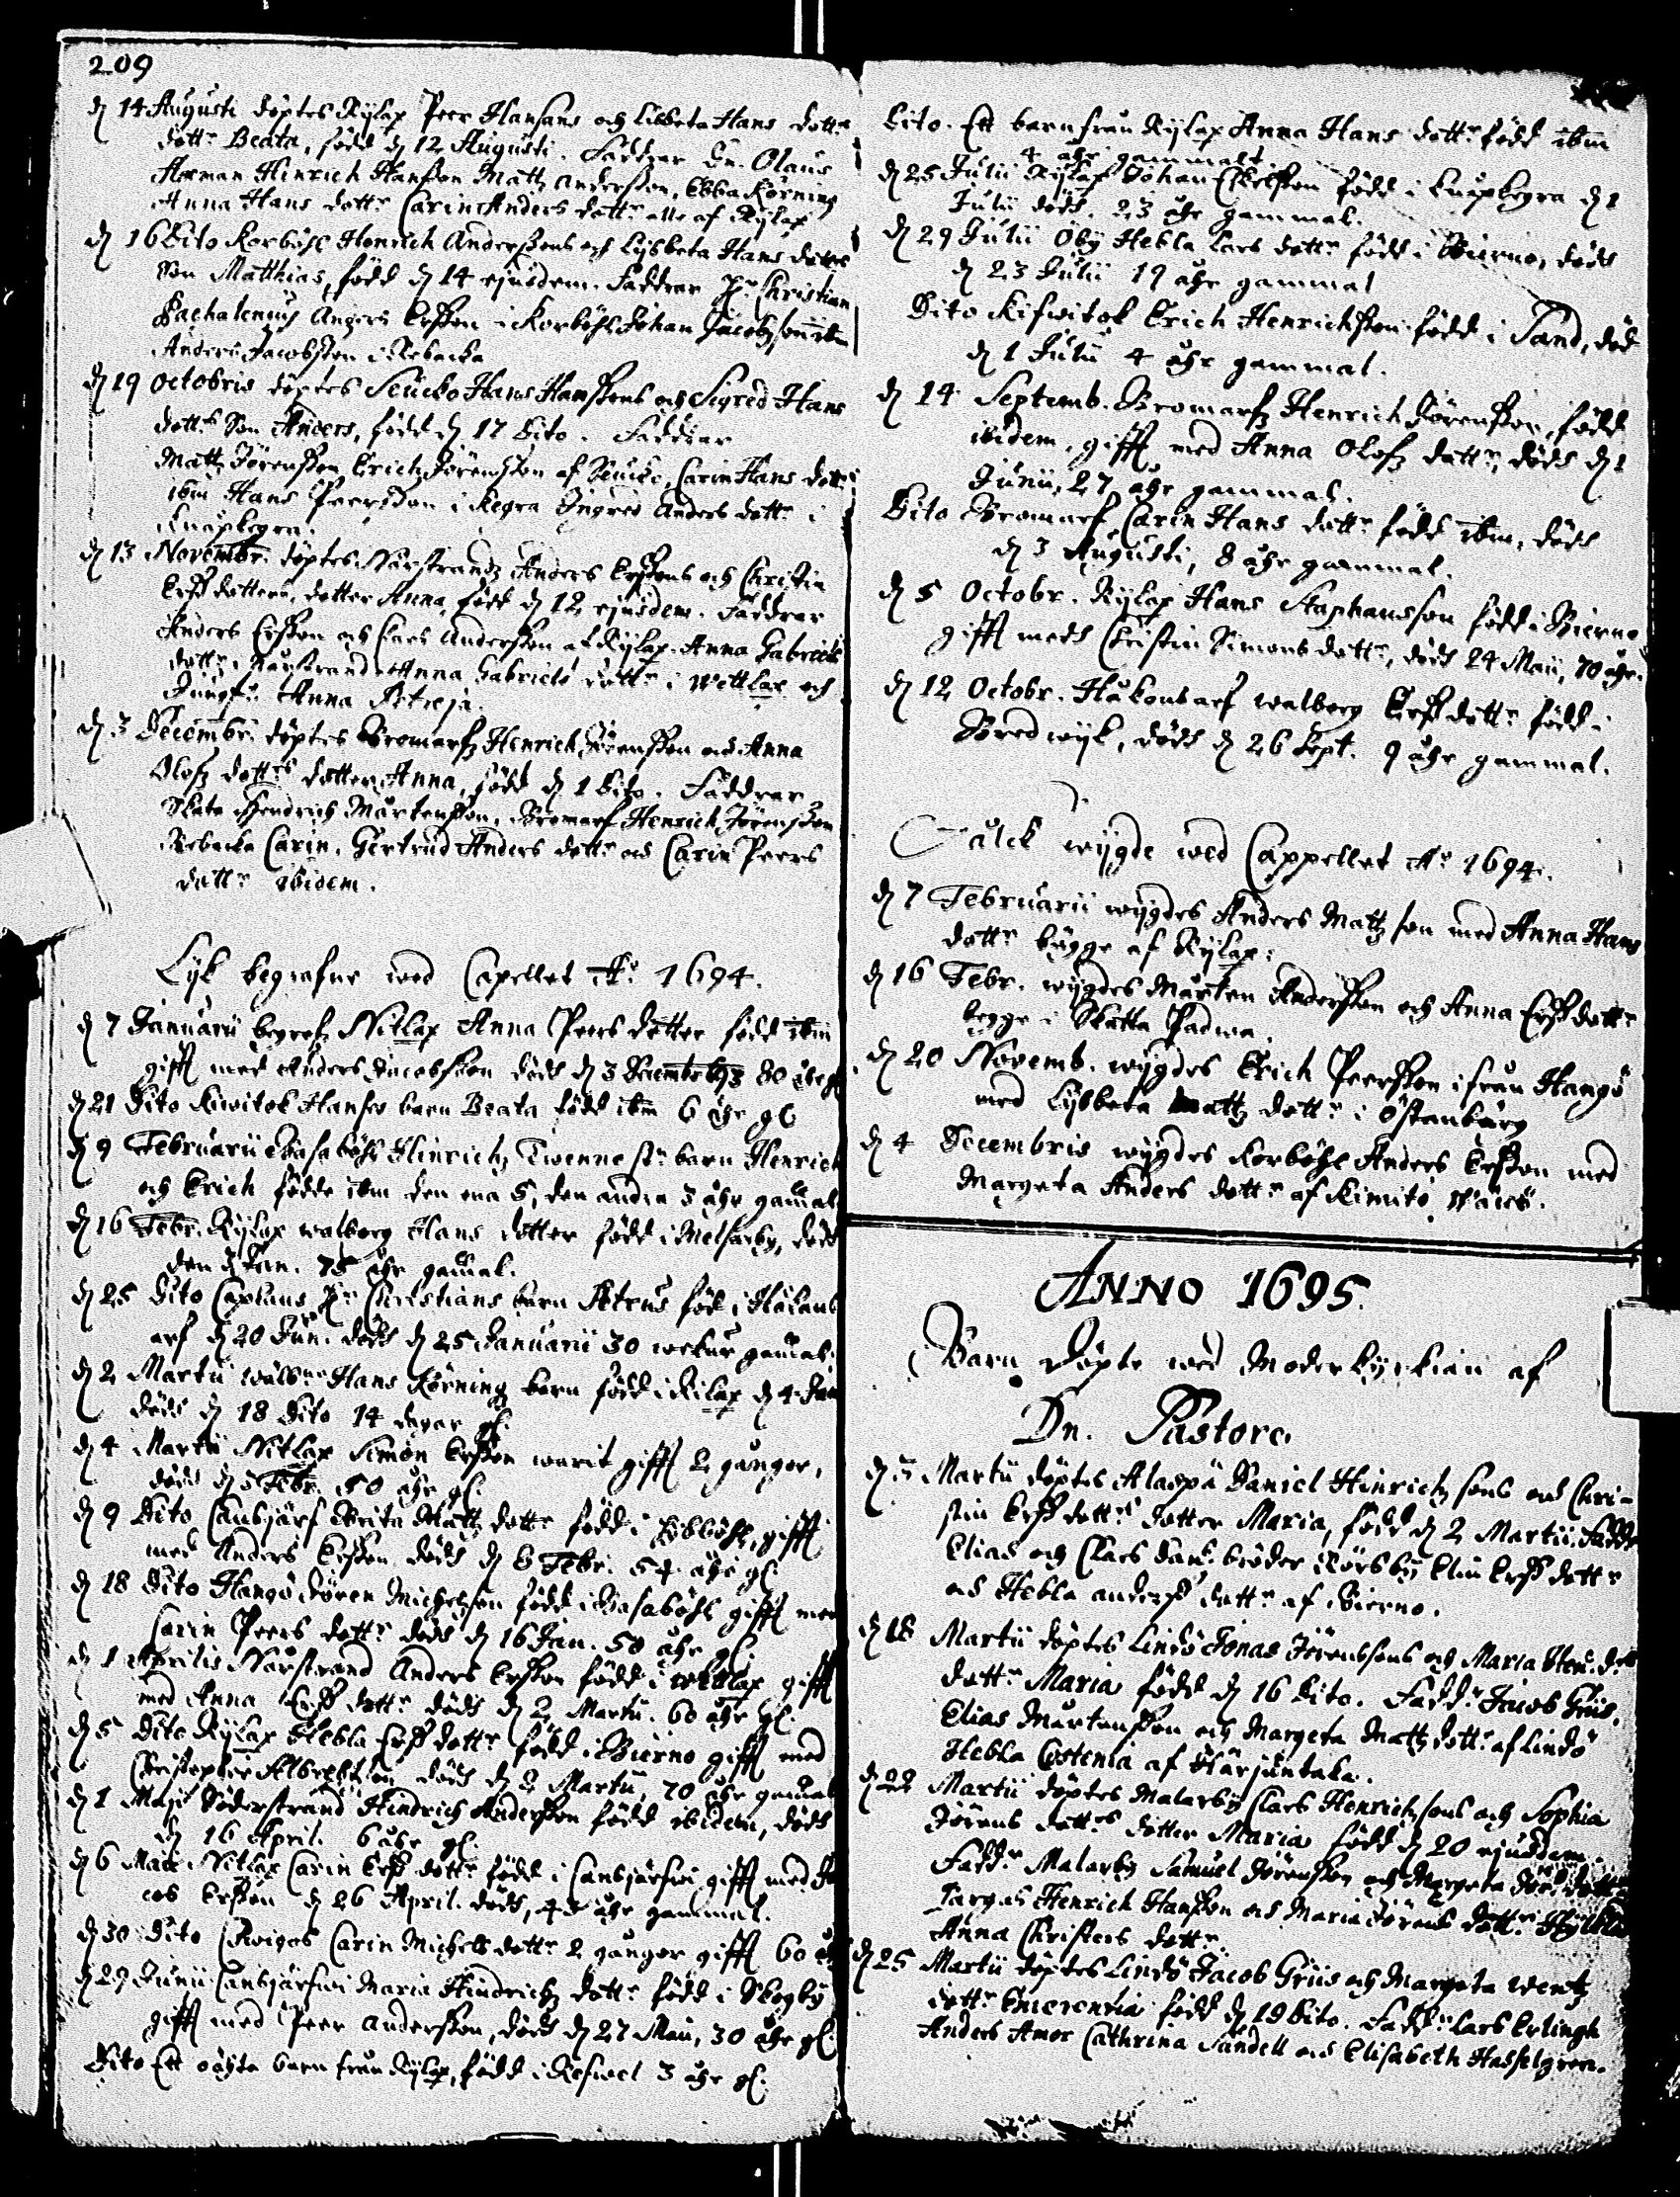 209
d 14 Augusti döptes Rylax Peer Hansans och Lisbeta Hans dotts
dottr Beata, född d 12 Augusti. Faddrar Dn. Olaus
Herman Hinrich Hansson Matz Andersson, Ebba Körning
Anna Hans dottr Carin Anders dottr alle af Rylax
d 16 Dito Korböhl Henrich Anderssons och Lysbeta Hans dotters
Son Matthias, född d 14 ejusdem. Faddrar Hr Christian
Erssen i Korböhl Johan Jacobsson ibm
Anders Jacobsson i Rebacka
d 19 octobris döptes Seucko Hans Hanssons och Sigred Hans
dottrs Son Anders, född d 17 Dito. Faddrar
Matz Jörensson, Erich Jörensson af Carin Hans dottr
ibm Hans Peersson i Regra Ingred Anders dottr i
Knapkegra.
d 13 Novembr. döptes Närstrandz Anders Erssons och Christin
Ers dotters, dotter Anna, född d 12 ejusdem. Faddrar
Anders Ersson och Claes Andersson af Rylax. Anna Gabriels
dottr i Närstrand Anna Gabriels dottr i Wettlax och
Jungfr. Anna Petreja.
d 3 Decembr. döptes Bromarf Henrich Jörensson och Anna
Olofz dottrs dotter Anna, född d 1 Dito. Faddrar
Skata Hendrich Mårtensson, Bromarf Henrich Jörensson
Rebacka Carin, Gertrud Anders dottr och Carin Peers
dottr ibidem.
Lyk begrafne wed Capellet Ao 1694.
d 7 Januarii begrofz Nitlax Anna Peers dotter född ibm
gifft med Anders Jacobsson död d 3 Decembr 80 åhr gl
d 21 Dito Kiwitok Hanses barn Beata född ibm 6 åhr gl
d 9 Februarii Basaböhl Hinrichz Twenne st. barn Henrich
och Erich födde ibm den ena 5, den andra 3 åhr gamal
d 16 Febr. Rylax walborg Hans dotter född i Melsarby, död
den Jan. 75 åhr gamal.
d 25 Dito Caplans Hr Christians barn Petrus föd i Håkans
arf d 20 Jun. död d 25 Januarii 30 wekur gamal.
d 2 Martii Hans Körning barn född i Rilax d 4 Jan
död d 18 Dito 14 dagar gl.
d 4 Martii Nitlax Simon Ersson warit gifft 2 gånger,
död d 5 Febr. 50 åhr gl.
d 9 Dito Cansjärf Brita Matz dottr född i gifft
med Anders Ersson död d 6 Febr. 54 åhr gl.
d 18 Dito Hangö Jören Michelsson född i Basaböhl gifft med
Carin Peers dottr död d 16 Jan. 50 åhr gl
d 1 Aprilis Närstrand Anders Ersson född i Wettlax gifft
med Anna Ers dottr död d 2 Martii. 60 åhr gl.
d 5 Dito Rylax Hebla Ers dottr född i Bierno gifft med
Christopher Albrektson död d 2 Martii, 70 åhr gamal
d 1 Maji Söderstrand Hindrich Andersson född ibidem, död
d 16 April. 6 åhr gl.
d 6 Maii Nitlax Carin Ers dottr född i Cansjärfwi gifft med Ja
cob Ersson d 26 April. död, åhr gammal.
d 30 Dito Carin Michels dottr 2 gånger gifft 60 åh
d 29 Junii Cansjärfwi Maria Hindrichz dottr född i Skogby
gifft med Peer Andersson, död d 27 Maii, 30 åhr gl.
Dito Ett oächta barn från Rylax, född i Refwel 3 åhr gl.
Dito. Ett barn från Rylax Anna Hans dottr född ibm
4 åhr gammalt
d 25 Julii Rylax Johan född i Knapkegra d 1
Julii död. 23 åhr gammal.
d 29 Julii Öby Hebla Lars dottr född i Bierno, död
d 23 Julii 19 åhr gammal
Dito Kifwitok Erich Henrichsson född i Sand, död
d 1 Julii 4 åhr gammal.
d 14 Septemb. Bromarf Henrich Jörensson, född
ibidem, gifft med Anna Olofz dottr, död d 1
Junii, 27 åhr gammal.
Dito Bromarf Carin Hans dottr född ibm, död
d 3 Augusti, 8 åhr gammal.
d 5 Octobr. Rylax Hans Staphansson född i Bierno
gifft med Christin Simons dottr, död 24 Maii, 70 åhr.
d 12 Octobr. Håkonsarf walborg Ers dottr född i
Bredwyk, död d 26 Sept. 9 åhr gammal.
Fålck wygde wed Cappellet Ao 1694.
d 7 Februarii wygdes Anders Matzson med Anna Hans
dottr bägge af Rylax.
d 16 Febr. wygdes Mårten Andersson och Anna Ers dottr
begge i Skatta Padwa.
d 20 Novemb. wygdes Erich Peersson ifrån Hangö
med Lysbeta Matz dottr i Östanbärg
d 4 Decembris wygdes Korböhl Anders Ersson med
Margeta Anders dottr af Kimito.
ANNO 1695.
Barn döpte wed Moderkyrkian af
Dn. Pastore.
d 3 Martii döptes Alaspä Daniel Hinrichsons och Chri-
stin Ers dottrs dotter Maria, född d 2 Martii. Faddr
Elias och Claes bröder Elin Ers dottr
och Hebla Anders dottr af Bierno.
d 18 Martii döptes Lindö Jonas Jörenssons och Maria
dottr Maria född d 16 Dito. Faddr Jacob Griis,
Elias Mårtensson och Margeta Matz dottr af Lindö
Hebla Costenia af Härjänkaka.
d 22 Martii döptes Malarby Clars Henrichsons och Sophia
Jörens dottrs dotter Maria född d 20 ejusdem.
Faddr Malarby Samuel Jörensson och Margeta dottr
Pargas Henrich Hansson och Maria Jörens dottr
Anna Christers dottr.
d 25 Martii döptes Lindö Jacob Griis och Margeta Wentz
dottr Emerentia född d 19 Dito. Faddr Lars Erlingh
Anders Amor Cathrina Sandell och Elisabeth Hasselgren.